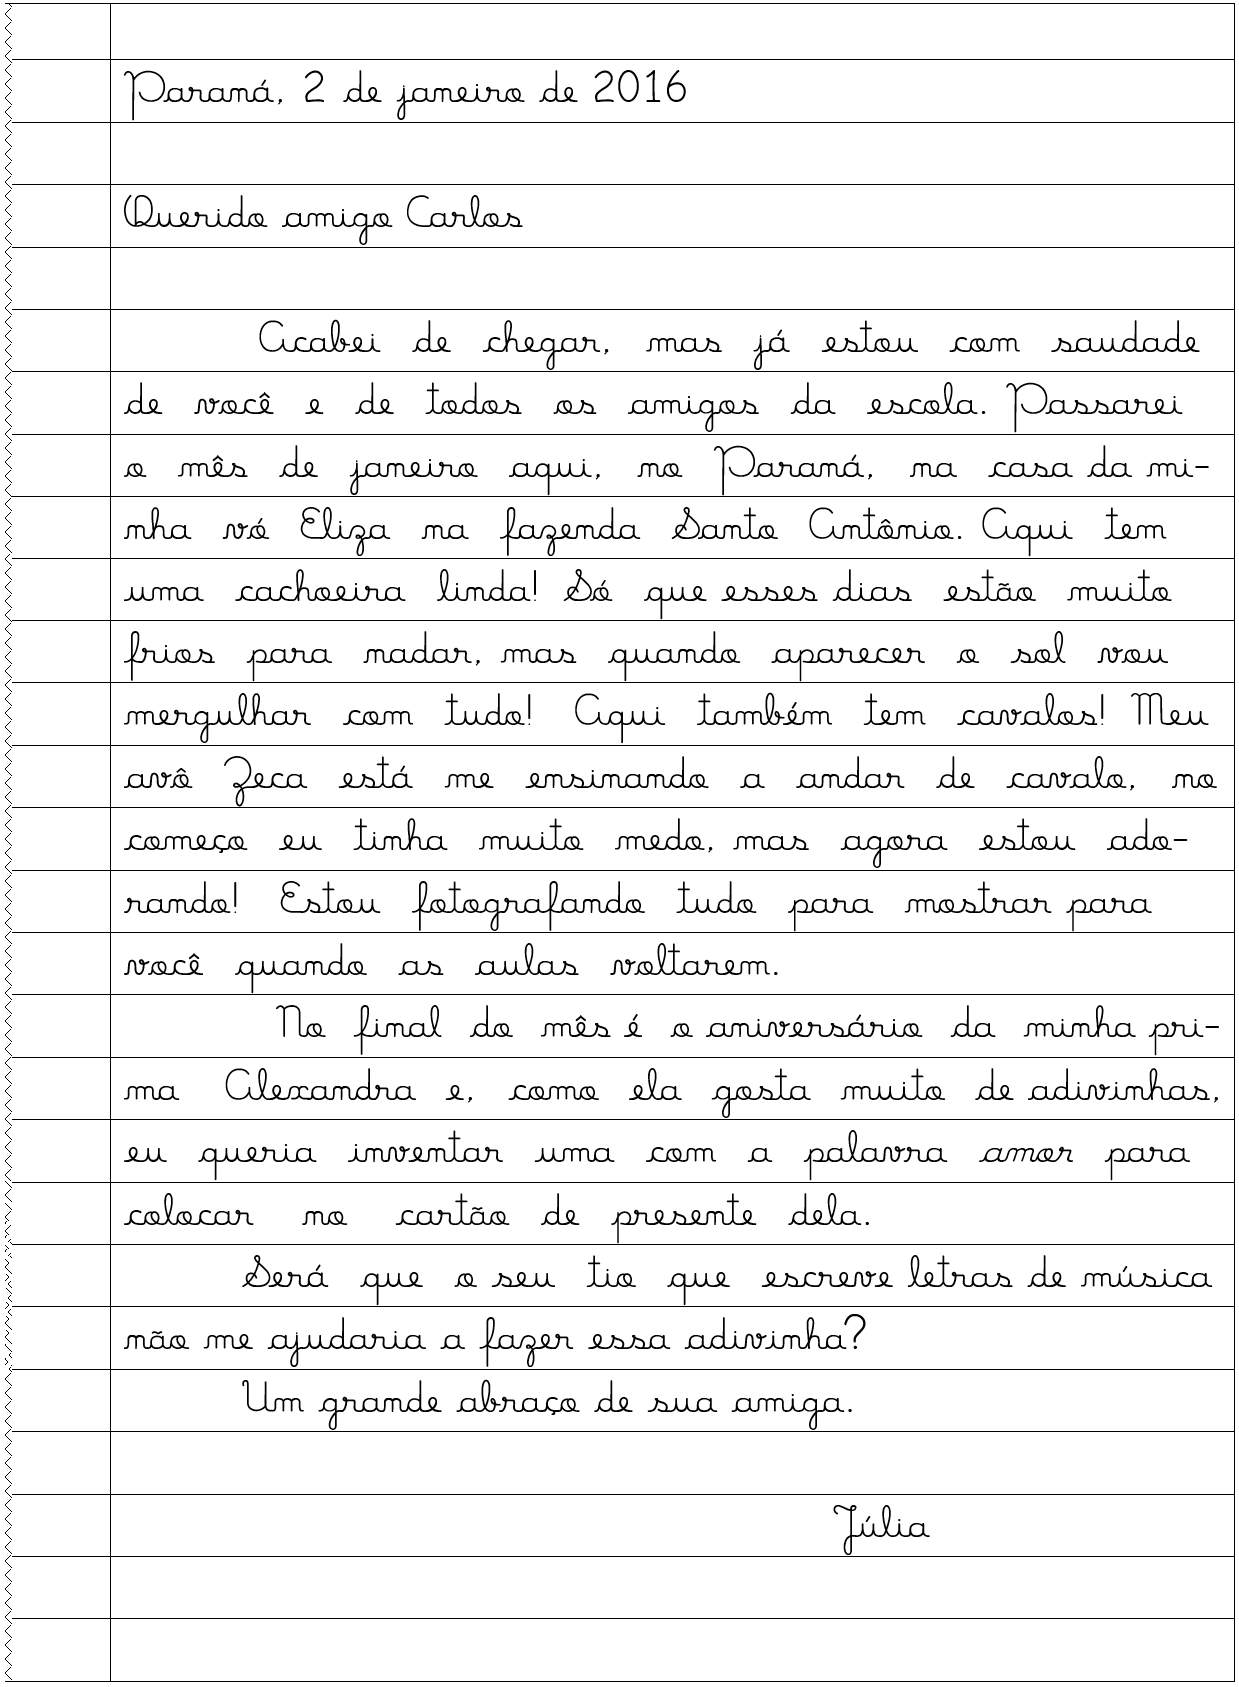 Paraná, 2 de janeiro de 2016
Querido amigo Carlos
Acabei de chegar, mas já estou com saudade
de você e de todos os amigos da escola. Passarei
o mês de janeiro aqui, no Paraná, na casa da mi-
nha vó Eliza na fazenda Santo Antônio. Aqui tem
uma cachoeira linda! Só que esses dias estão muito
frios para nadar, mas quando aparecer o sol vou
mergulhar com tudo! Aqui também tem cavalos! Meu
avô Zeca está me ensinando a andar de cavalo, no
começo eu tinha muito medo, mas agora estou ado-
rando! Estou fotografando tudo para mostrar para
você quando as aulas voltarem.
No final do mês é o aniversário da minha pri-
ma Alexandra e, como ela gosta muito de adivinhas,
eu queria inventar uma com a palavra amor para
colocar no cartão de presente dela.
Será que o seu tio que escreve letras de música
não me ajudaria a fazer essa adivinha?
Um grande abraço de sua amiga.
Júlia